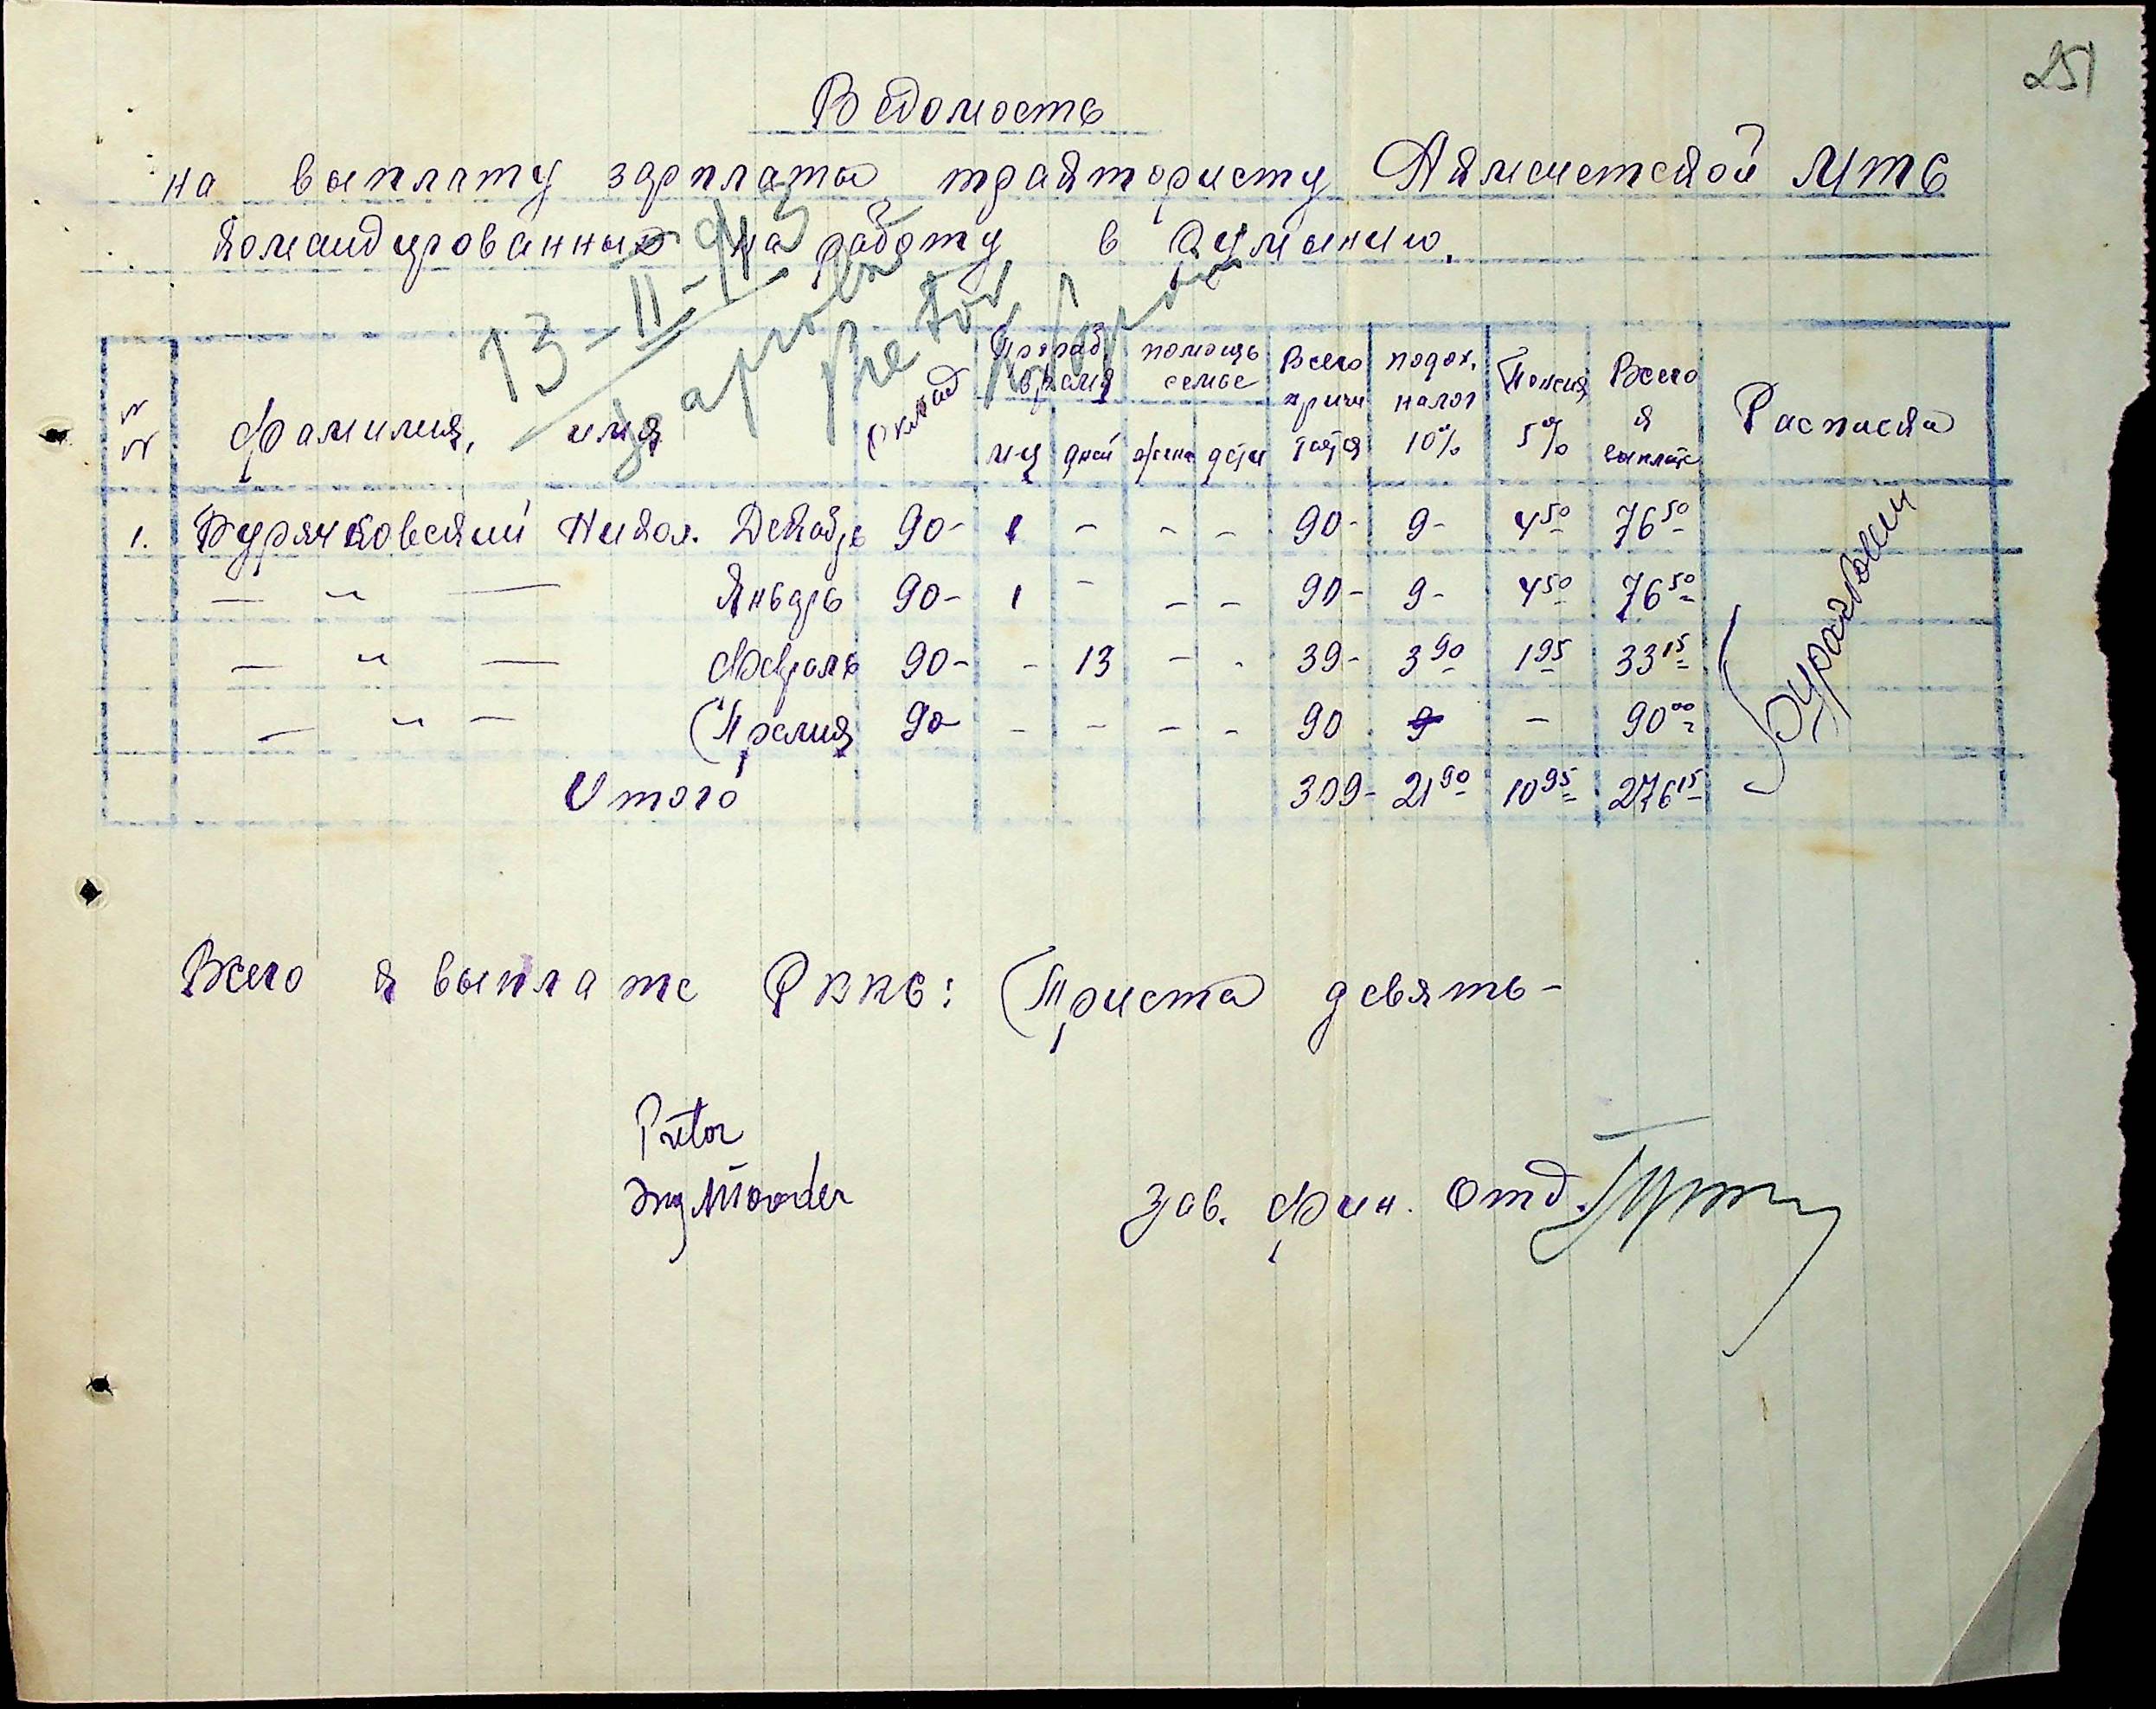 251
Ведомость
на выплату зарплаты трактористу Акмечетской МТС
командированных на работу в Румынию.
13-II-943
aprobă
Pretor
N N Фамилия, имя Оклад Прораб. время м-ц дней помощь семье жена дети Всего причитается подох. налог 10% Пенсия 5% Всего к выплате Расписка
1. Бурячковский Никол. Декабрь 90- 1 - - - 90- 9- 4 50 76 50
— " — Январь 90- 1 - - - 90- 9- 4 50 76 50
— " — Февраль 90- - 13 - - 39- 3 90 1 95 33 15
— " — Премия 90- - - - - 90 9 - 90 00
Итого 309- 21 90 10 95 276 15
Всего к выплате РККС: (Триста девять-
Pretor
Ing
Зав. Фин. Отд.